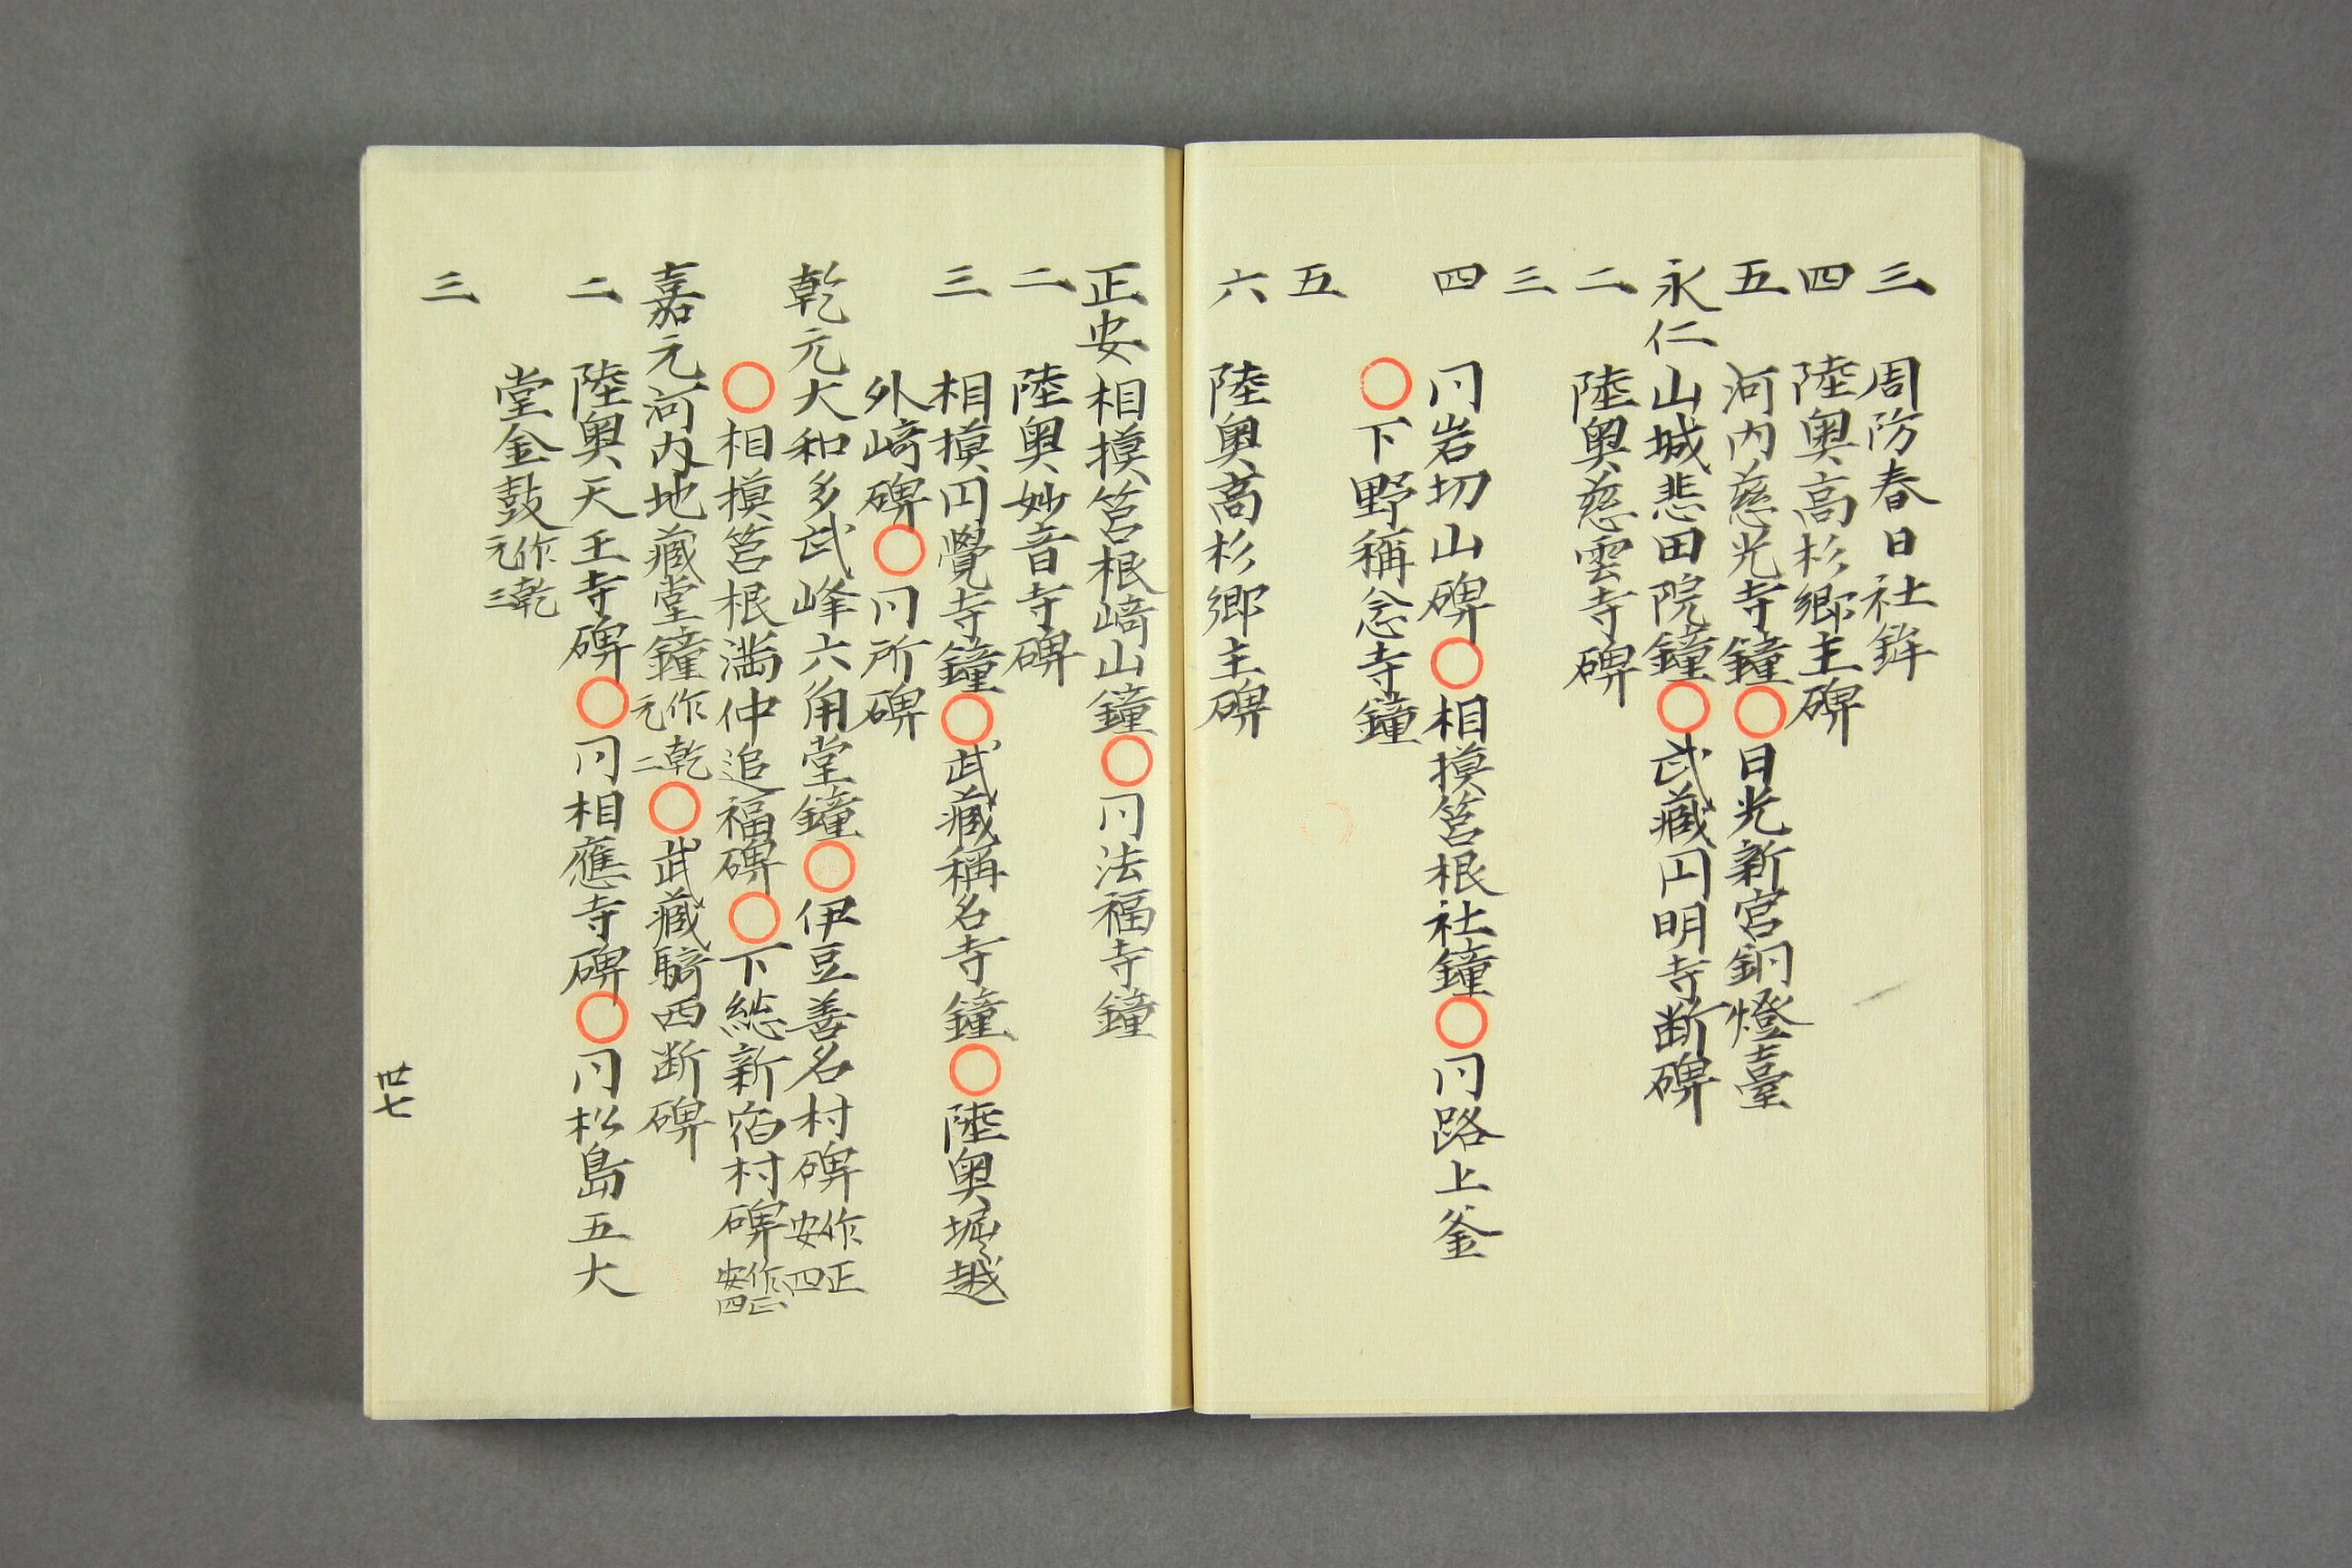 三 周防春日社鉾
四 陸奥高杉郷主碑
五 河内慈光寺鐘〇日光新宮銅燈臺
永仁 山城悲田院鐘〇武藏円明寺断碑
二 陸奥慈雲寺碑
三
四 冋岩切山碑〇相摸筥根社鐘〇冋路上釜
〇下野稱念寺鐘
五
六 陸奥高杉郷主碑
正安 相摸筥根﨑山鐘〇冋法福寺鐘
二 陸奥妙音寺碑
三 相摸円覺寺鐘〇武藏稱名寺鐘〇陸奥堀越
外﨑碑〇冋所碑
乾元 大和多武峰六角堂鐘〇伊豆善名村碑作正安四
〇相摸筥根満仲追福碑〇下総新宿村碑作正安四
嘉元 河内地藏堂鐘作乾元二〇武藏騎西断碑
二 陸奥天王寺碑〇冋相應寺碑〇冋松島五大
堂金鼓作乾元三
三
丗七